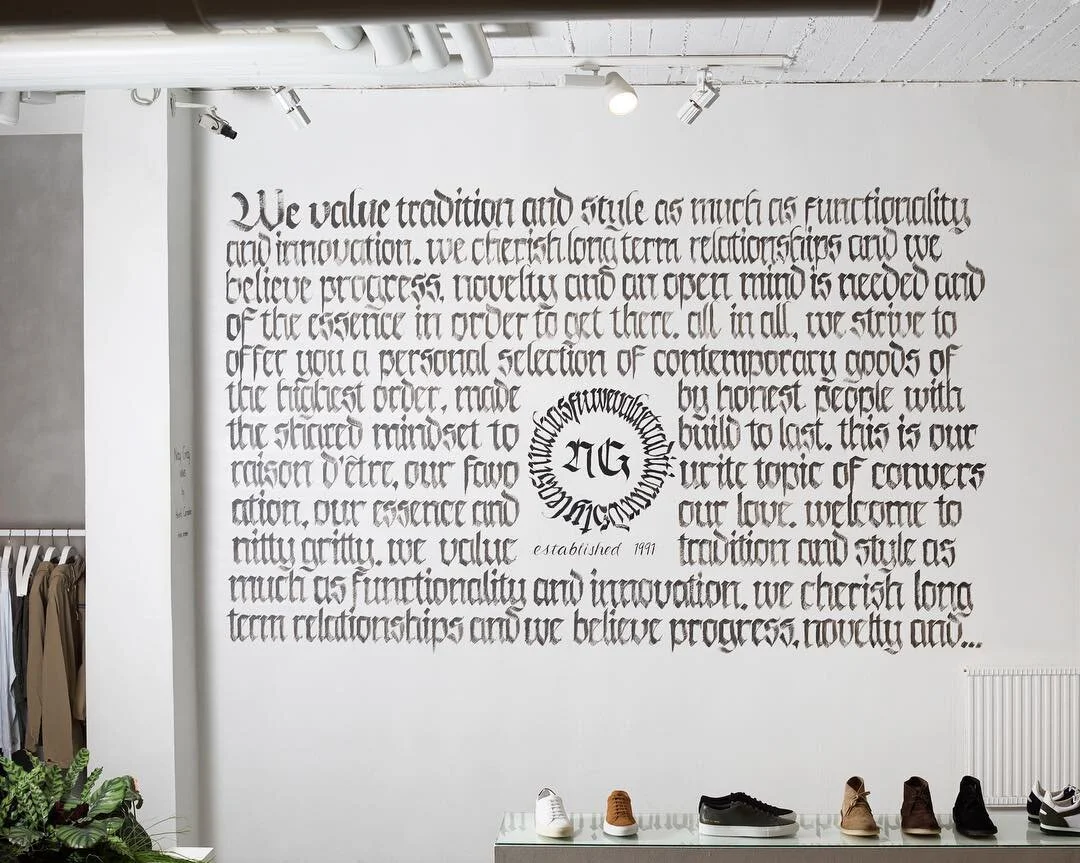 We value tradition and style as much as functionality
and innovation. we cherish long term relationships and we
believe progress, novelty and an open mind is needed and
of the essence in order to get there. all in all, we strive to
offer you a personal selection of contemporary goods of
the highest order, made by honest people with
the shared mindset to build to last. this is our
raison d'être, our favo urite topic of convers
ation, our essence and our love. welcome to
nitty gritty. we value tradition and style as
much as functionality and innovation. we cherish long
term relationships and we believe progress, novelty and...
wevaluetraditionandstyleasmuchasfu
NG
established 1991